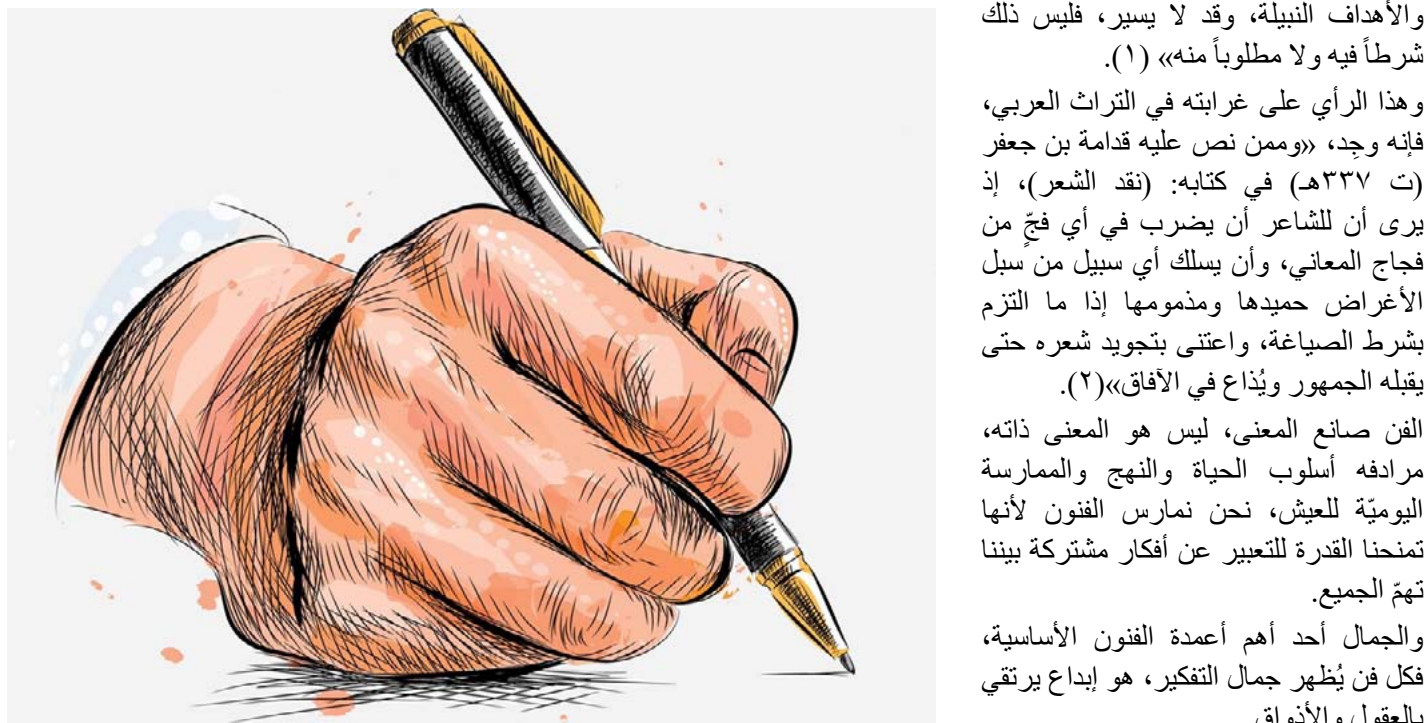 والأهداف النبيلة، وقد لا يسير، فليس ذلك
شرطاً فيه ولا مطلوباً منه» (١).
وهذا الرأي على غرابته في التراث العربي،
فإنه وجِد، «وممن نص عليه قدامة بن جعفر
(ت ٣٣٧هـ) في كتابه: (نقد الشعر)، إذ
يرى أن للشاعر أن يضرب في أي فجّ من
فجاج المعاني، وأن يسلك أي سبيل من سبل
الأغراض حميدها ومذمومها إذا ما التزم
بشرط الصياغة، واعتنى بتجويد شعره حتى
يقبله الجمهور ويُذاع في الآفاق»(٢).
الفن صانع المعنى، ليس هو المعنى ذاته،
مرادفه أسلوب الحياة والنهج والممارسة
اليوميّة للعيش، نحن نمارس الفنون لأنها
تمنحنا القدرة للتعبير عن أفكار مشتركة بيننا
تهمّ الجميع.
والجمال أحد أهم أعمدة الفنون الأساسية،
فكل فن يُظهر جمال التفكير، هو إبداع يرتقي
بالعقول والأذواق